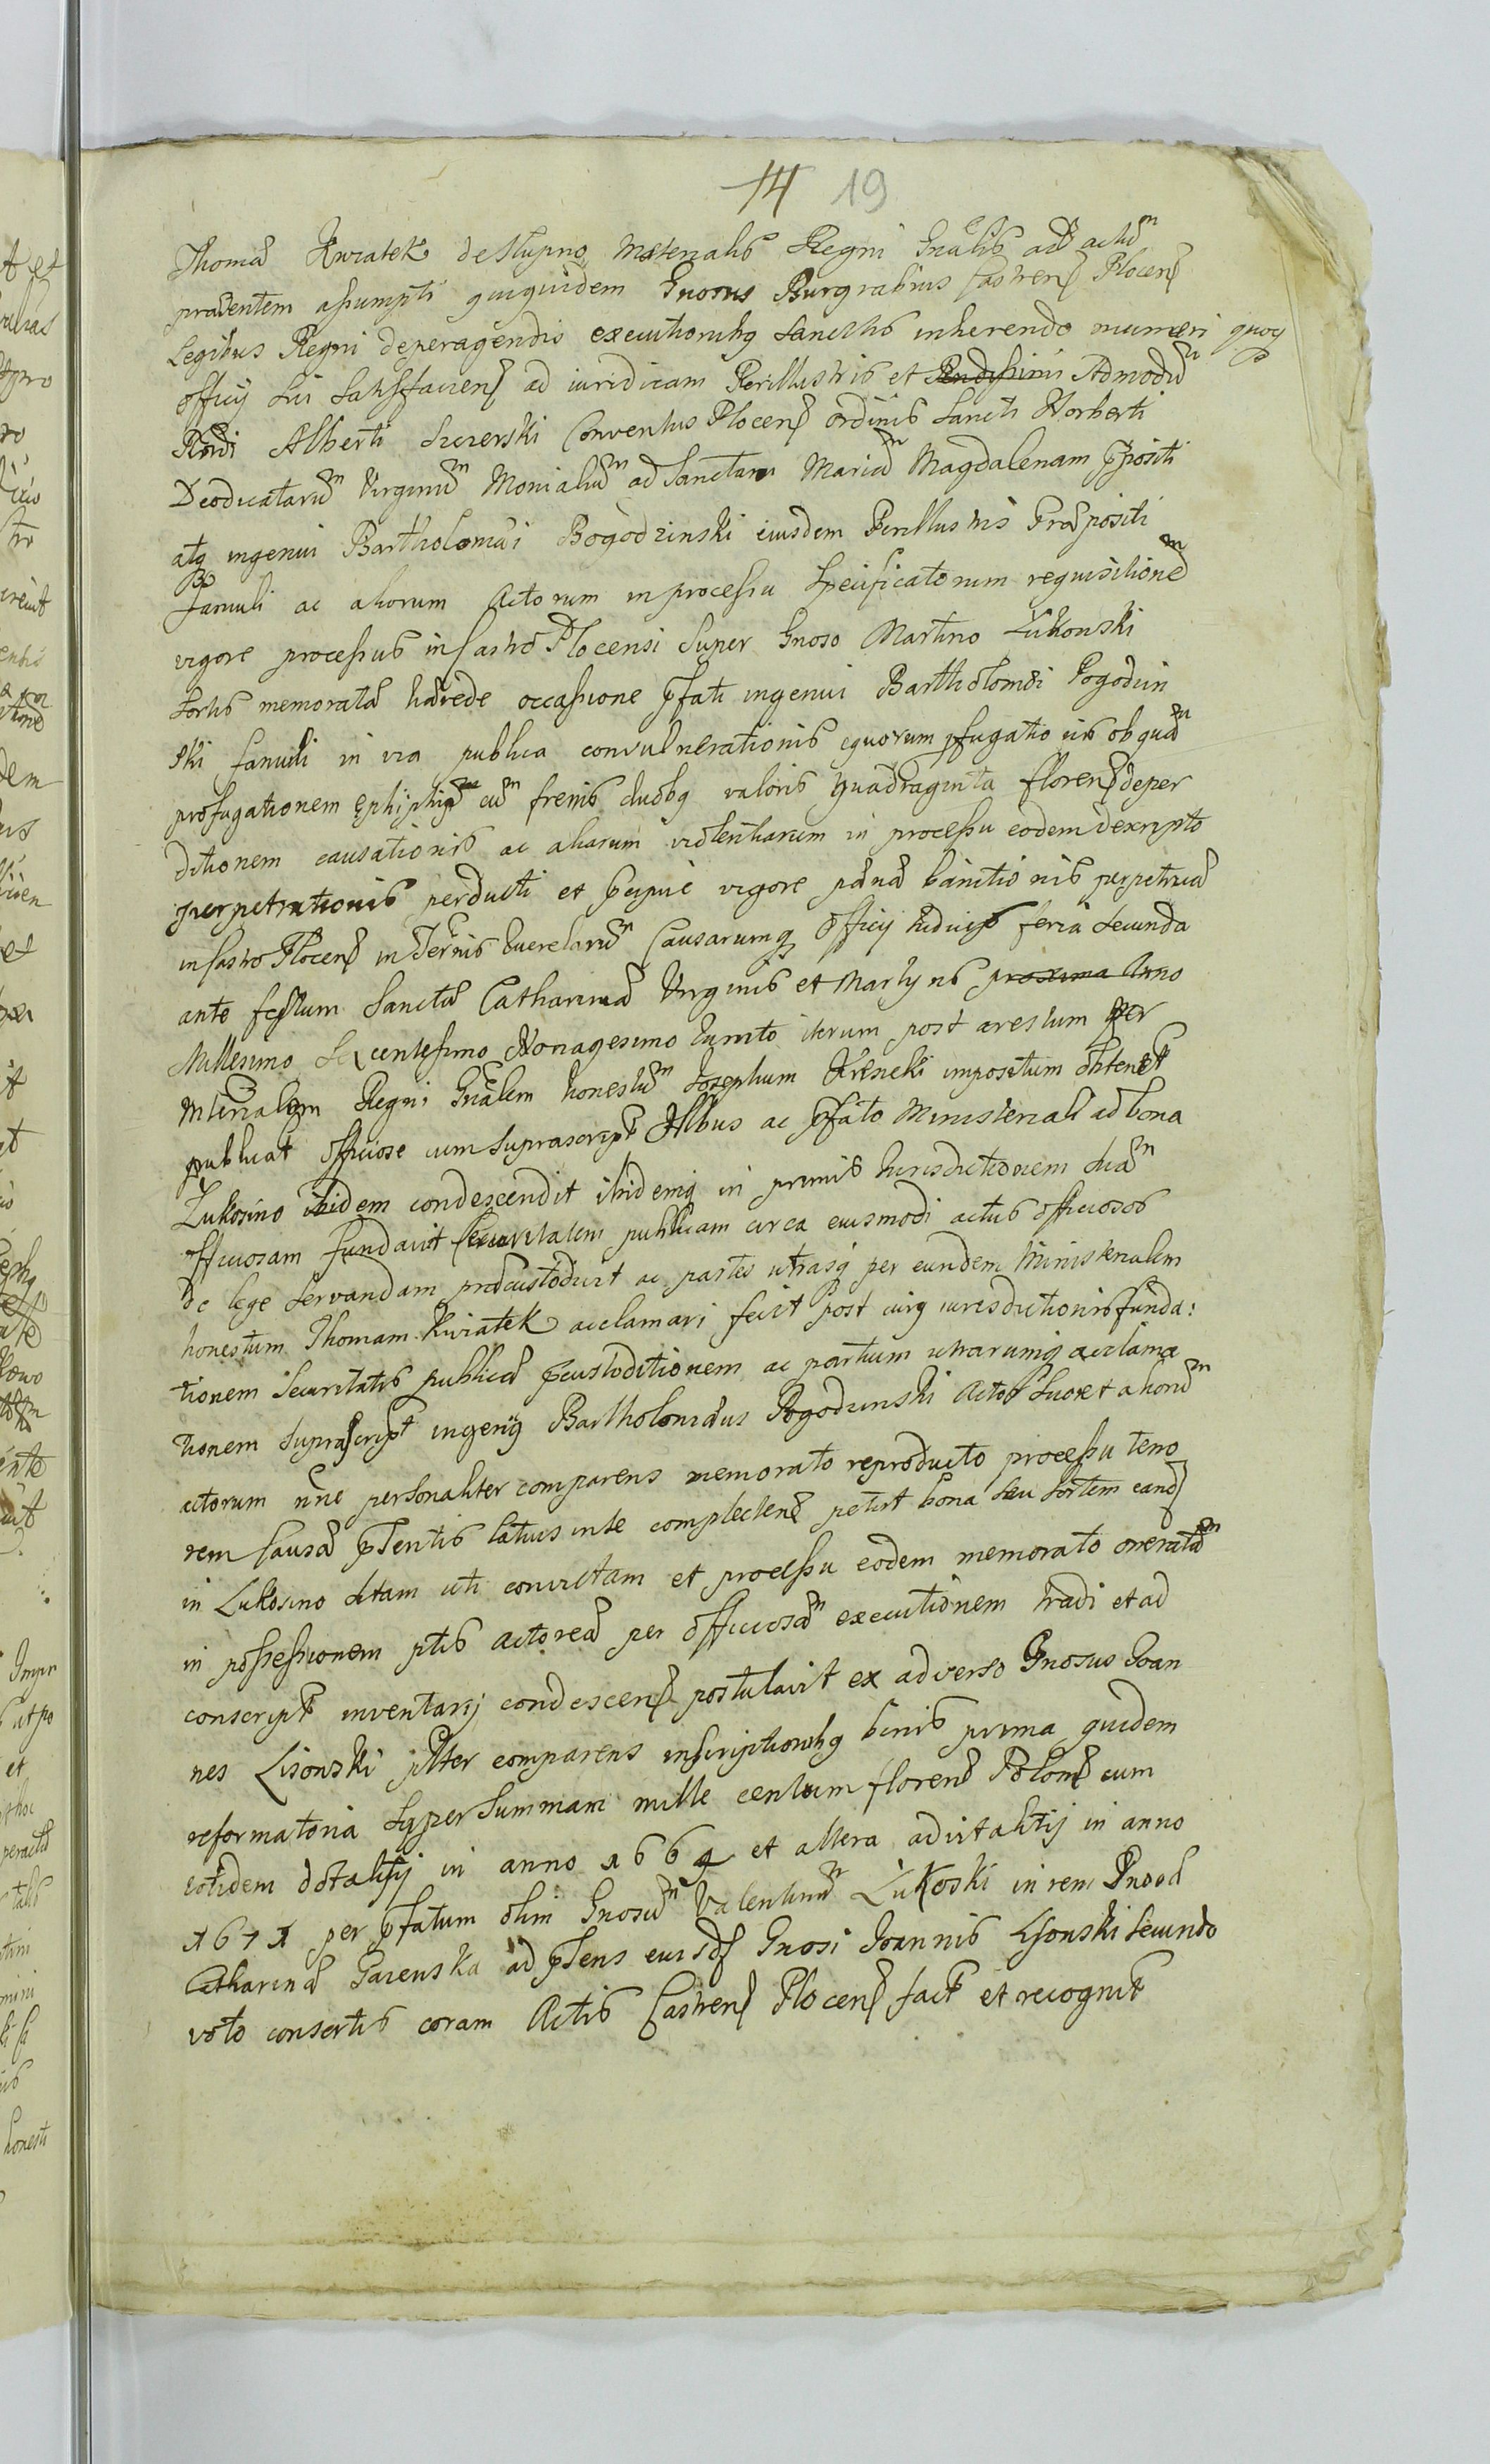 14 19
Thomæ Kwiatek de Słupno Mĩterialis Regni Gnãlis ad actũm
præsentem assumpti quiquidem Gnosus Burgrabius Castren Plocen
Legibus Regni deperagendis executionibq sancitis inherendo muneri quoq
officij sui satisfacien ad iuridicam Perillustris et Rendissimi Admodũ
Rndi Alberti Szczerski Conventus Plocen ordinis Sancti Norberti
Deodicatarũm Virginũm Monialiũm ad Sanctam Mariãm Magdalenam Ppositi
atq ingenui Bartholomæi Bogodzinski eiusdem Perillustris Præpositi
famuli ac aliorum Actorum in processu specificatorum requisitionẽm
vigore processus in Castro Plocensi super Gnoso Martino Łukoski
sortis memoratæ hærede occassione pfati ingenui Bartholomæi Pogodzin
ski famuli in via publica convulnerationis equorum pfugatio nis ob quãm
profugationem ephiphiq cũm frenis duobq valoris quadraginta floren deper
ditionem causationis ac aliarum violentiarum in processu eodem descripto
perpetrationis perducti et pcipue vigore pænæ banitio nis perpetuæ
in Castro Plocen in Ternis Querelarũm Causarumq Officij Iudicijs feria secunda
ante festum Sanctæ Catharinæ Virginis et Martyris proxima Anno
Millesimo Sexcentesimo Nonagesimo Quinto iterum post arestum per
Mterialem Regni Gnãlem honestũm Josephum impositum obtent
publicat officiose cum suprascript Nlbus ac pfato Ministeriali ad bona
Łukosino ibidem condescendit ibidemq in primis Iurisdictionem suãm
officiosam fundavit securitatem publicam circa eiusmodi actus officiosos
de lege servandam præcustodivit ac partes utrasq per eundem Ministerialem
honestum Thomam Kwiatek acclamari fecit Post cuiq iurisdictionis funda:
tionem securitatis publicæ pcustoditionem ac partium utrarumq acclama
tionem suprascript ingeniq Bartholomæus Pogodzinski Actor suo et aliorũm
actorum nne personaliter comparens memorato reproducto processu teno
rem Causæ psentis latius inse complecten petiit bona seu sortem eand
in Lukosino sitam uti convictam et processu eodem memorato oneratãm
in possessionem ptis actoreæ per officiosãm executionem tradi et ad
conscript inventarij condescen postulavit ex adverso Gnosus Joan
nes Lisonski pltter comparens inscriptionibq binis prima quidem
reformatoria super summam mille centum floren Polon cum
totidem dotalitij in anno 1664 et altera advitalitij in anno
1671 per pfatum olim Gnosũm Valentinũm Łukoski in rem Gnosæ
Catharinæ Garenska ad psens eiusd Gnosi Joannis Lisonski secundo
voto consortis coram Actis Castren Plocen fact et recognit